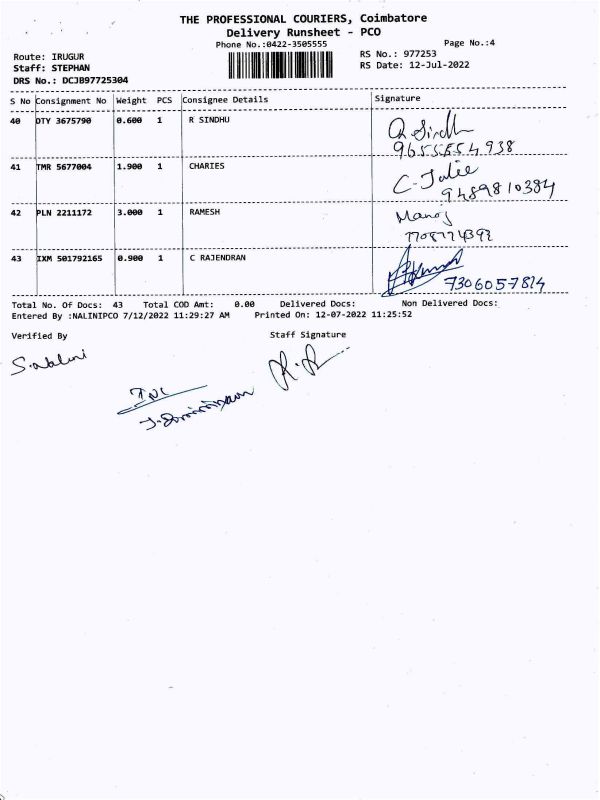 THE PROFESSIONAL COURIERS, Coimbatore
Delivery Runsheet - PCO
Phone No.:0422-3505555
Page No.:4
Route: IRUGUR
RS No.: 977253
Staff: STEPHAN
RS Date: 12-Jul-2022
DRS No.: DCJB97725304
S No Consignment No Weight PCS Consignee Details Signature
40 DTY 3675790 0.600 1 R SINDHU
41 TMR 5677004 1.900 1 CHARIES
C. Julie
9489810384
42 PLN 2211172 3.000 1 RAMESH Manoj
7708774392
43 IXM 501792165 0.900 1 C RAJENDRAN
7306057814
Total No. Of Docs: 43 Total COD Amt: 0.00 Delivered Docs: Non Delivered Docs:
Entered By :NALINIPCO 7/12/2022 11:29:27 AM Printed On: 12-07-2022 11:25:52
Verified By Staff Signature
S. Nalini